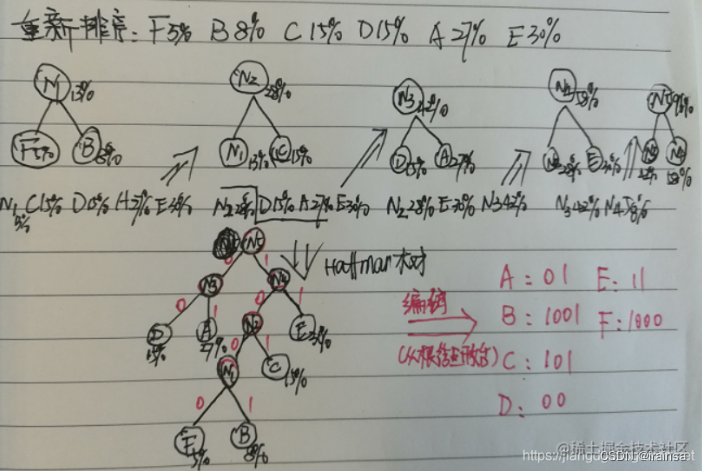 重新排序: F5% B8% C15% D15% A27% E30%
N1 13%
F5%
B 8%
N2 28%
N1 13%
C 15%
N3 42%
D 15%
A 27%
N4 58%
N2 28%
E 30%
N5
N1 C15% D15% A27% E30%
N2 28% D15% A27% E30%
N2 28% E30% N3 42%
N3 42% N4 58%
N5
0 1
N3
N4
0 1 0 1
D 15%
A 27%
N2
E 30%
0 1
N1
C 15%
0 1
F 5%
B 8%
Haffman树
编码
A: 01 E: 11
B: 1001 F: 1000
C: 101
D: 00
@稀土掘金技术社区
CSDN @irainsa